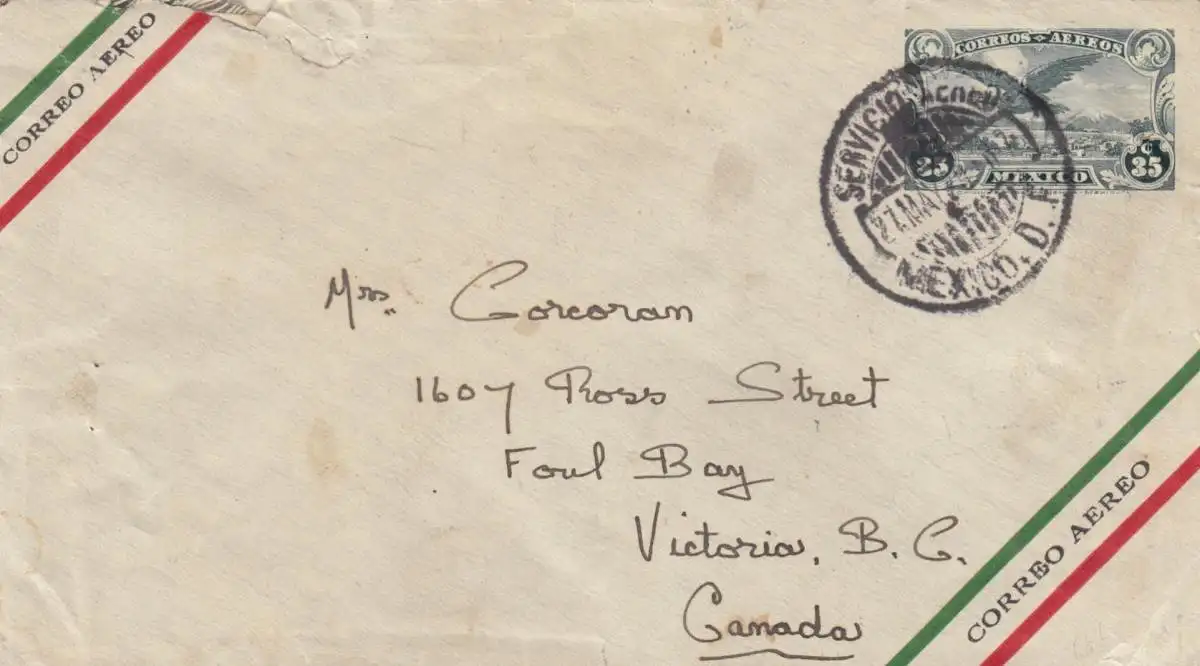 CORREO AEREO
CORREOS AEREOS
25 ¢ 35
MEXICO
SERVICIO AEREO
27.MAY
MEXICO, D. F.
Mrs. Corcoran
1607 Ross Street
Foul Bay
Victoria, B. C.
Canada
CORREO AEREO